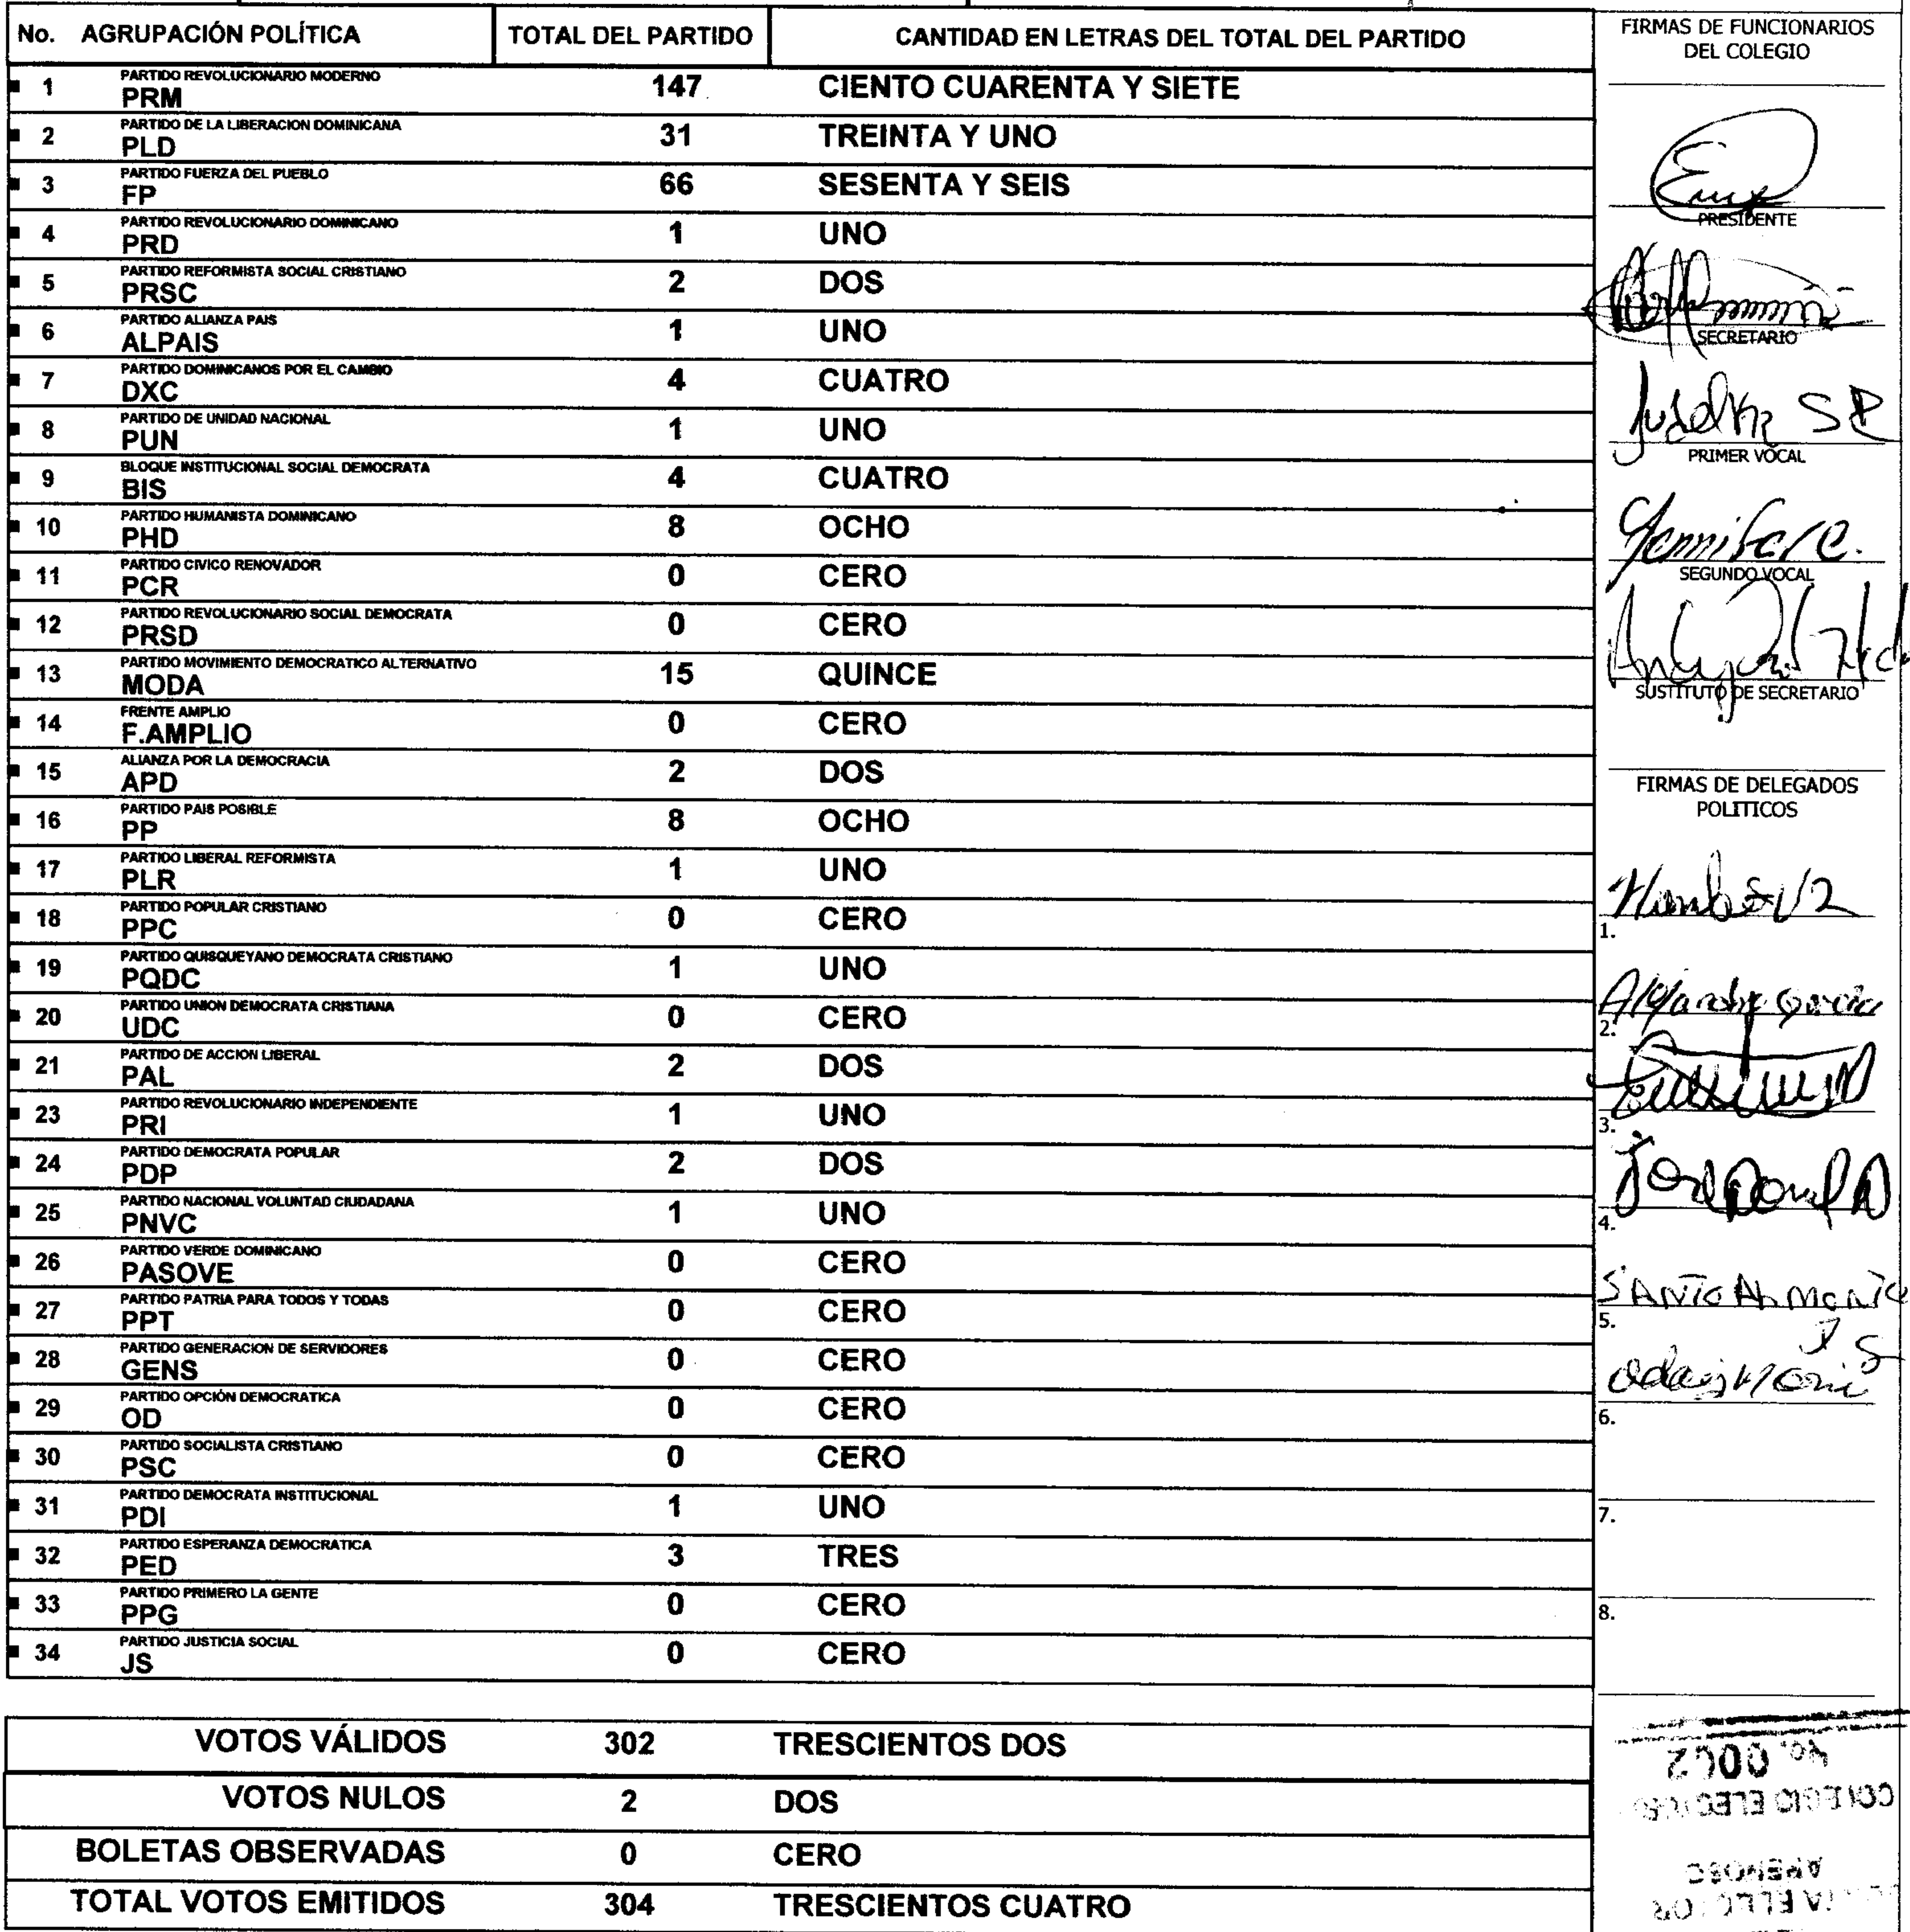 No. AGRUPACIÓN POLÍTICA TOTAL DEL PARTIDO CANTIDAD EN LETRAS DEL TOTAL DEL PARTIDO
PARTIDO REVOLUCIONARIO MODERNO
1 PRM 147 CIENTO CUARENTA Y SIETE
PARTIDO DE LA LIBERACION DOMINICANA
2 PLD 31 TREINTA Y UNO
PARTIDO FUERZA DEL PUEBLO
3 FP 66 SESENTA Y SEIS
PARTIDO REVOLUCIONARIO DOMINICANO
4 PRD 1 UNO
PARTIDO REFORMISTA SOCIAL CRISTIANO
5 PRSC 2 DOS
PARTIDO ALIANZA PAIS
6 ALPAIS 1 UNO
PARTIDO DOMINICANOS POR EL CAMBIO
7 DXC 4 CUATRO
PARTIDO DE UNIDAD NACIONAL
8 PUN 1 UNO
BLOQUE INSTITUCIONAL SOCIAL DEMOCRATA
9 BIS 4 CUATRO
PARTIDO HUMANISTA DOMINICANO
10 PHD 8 OCHO
PARTIDO CIVICO RENOVADOR
11 PCR 0 CERO
PARTIDO REVOLUCIONARIO SOCIAL DEMOCRATA
12 PRSD 0 CERO
PARTIDO MOVIMIENTO DEMOCRATICO ALTERNATIVO
13 MODA 15 QUINCE
FRENTE AMPLIO
14 F.AMPLIO 0 CERO
ALIANZA POR LA DEMOCRACIA
15 APD 2 DOS
PARTIDO PAIS POSIBLE
16 PP 8 OCHO
PARTIDO LIBERAL REFORMISTA
17 PLR 1 UNO
PARTIDO POPULAR CRISTIANO
18 PPC 0 CERO
PARTIDO QUISQUEYANO DEMOCRATA CRISTIANO
19 PQDC 1 UNO
PARTIDO UNION DEMOCRATA CRISTIANA
20 UDC 0 CERO
PARTIDO DE ACCION LIBERAL
21 PAL 2 DOS
PARTIDO REVOLUCIONARIO INDEPENDIENTE
23 PRI 1 UNO
PARTIDO DEMOCRATA POPULAR
24 PDP 2 DOS
PARTIDO NACIONAL VOLUNTAD CIUDADANA
25 PNVC 1 UNO
PARTIDO VERDE DOMINICANO
26 PASOVE 0 CERO
PARTIDO PATRIA PARA TODOS Y TODAS
27 PPT 0 CERO
PARTIDO GENERACION DE SERVIDORES
28 GENS 0 CERO
PARTIDO OPCIÓN DEMOCRATICA
29 OD 0 CERO
PARTIDO SOCIALISTA CRISTIANO
30 PSC 0 CERO
PARTIDO DEMOCRATA INSTITUCIONAL
31 PDI 1 UNO
PARTIDO ESPERANZA DEMOCRATICA
32 PED 3 TRES
PARTIDO PRIMERO LA GENTE
33 PPG 0 CERO
PARTIDO JUSTICIA SOCIAL
34 JS 0 CERO
VOTOS VÁLIDOS 302 TRESCIENTOS DOS
VOTOS NULOS 2 DOS
BOLETAS OBSERVADAS 0 CERO
TOTAL VOTOS EMITIDOS 304 TRESCIENTOS CUATRO
FIRMAS DE FUNCIONARIOS
DEL COLEGIO
PRESIDENTE
SECRETARIO
PRIMER VOCAL
SEGUNDO VOCAL
SUSTITUTO DE SECRETARIO
FIRMAS DE DELEGADOS
POLITICOS
1.
2.
3.
4.
5.
6.
7.
8.
No. 0002